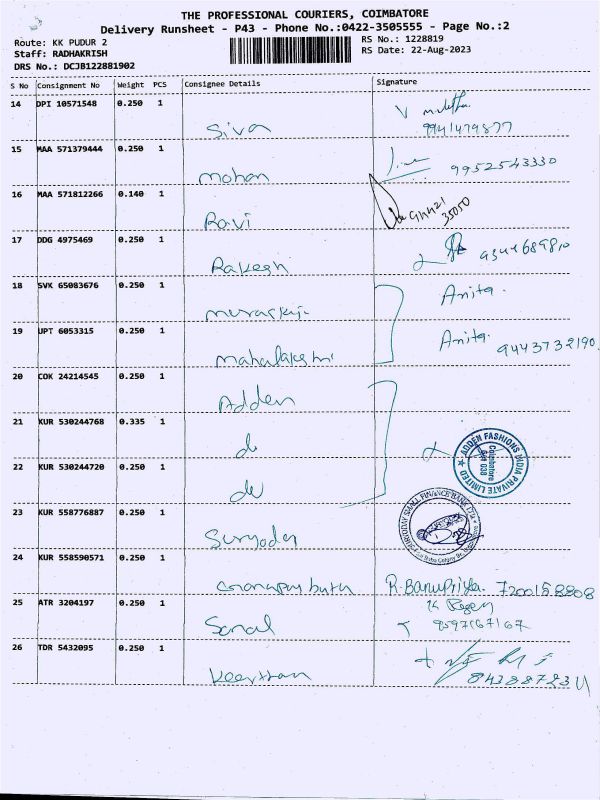 THE PROFESSIONAL COURIERS, COIMBATORE
Delivery Runsheet - P43 - Phone No.:0422-3505555 - Page No.:2
Route: KK PUDUR 2
Staff: RADHAKRISH
DRS No.: DCJB122881902
RS No.: 1228819
RS Date: 22-Aug-2023
S No Consignment No Weight PCS Consignee Details Signature
14 DPI 10571548 0.250 1 Siva
9941479877
15 MAA 571379444 0.250 1 mohan 9952543330
16 MAA 571812266 0.140 1 Ravi
35050
17 DDG 4975469 0.250 1 Rakesh
18 SVK 65083676 0.250 1 Anita.
19 UPT 6053315 0.250 1 mahalakshmi Anita.
9443732190
20 COK 24214545 0.250 1 Adden
21 KUR 530244768 0.335 1 do
22 KUR 530244720 0.250 1 do
ADDEN FASHIONS INDIA PRIVATE LIMITED
Coimbatore
641 038
23 KUR 558776887 0.250 1 Suryoday
SURYODAY SMALL FINANCE BANK LTD
24 KUR 558590571 0.250 1 R. Banupriya. 7200158808
25 ATR 3204197 0.250 1 Sonal
9597167167
26 TDR 5432095 0.250 1 Keerthan